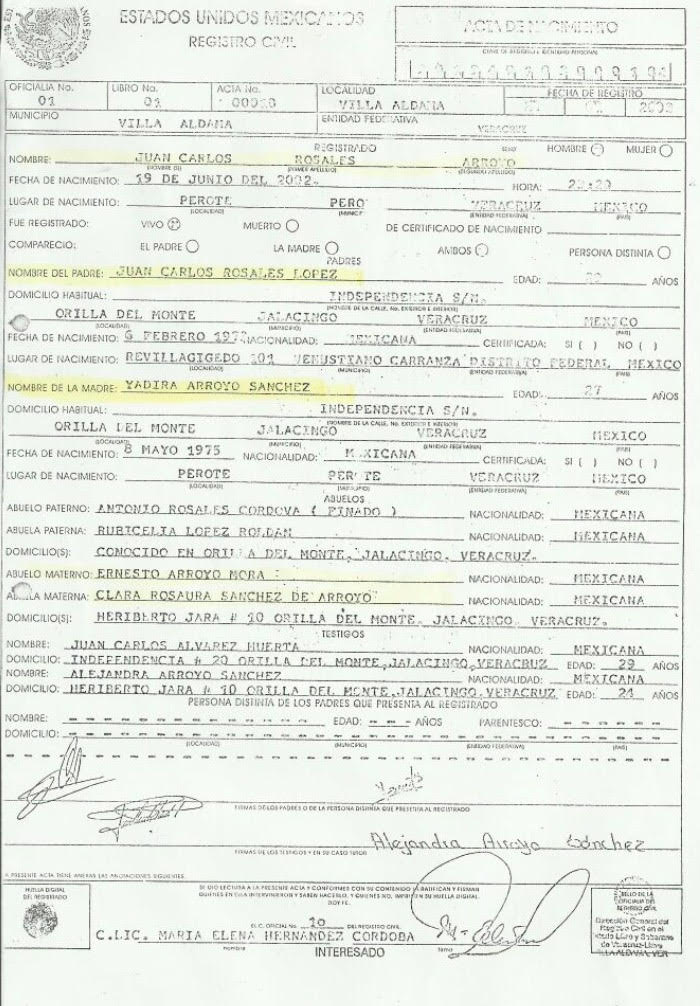 ESTADOS UNIDOS MEXICANOS
REGISTRO CIVIL
ACTA DE NACIMIENTO
OFICIALIA No. LIBRO No. ACTA No. LOCALIDAD FECHA DE REGISTRO
01 01 VILLA ALDAMA
MUNICIPIO VILLA ALDAMA ENTIDAD FEDERATIVA VERACRUZ
REGISTRADO HOMBRE MUJER
NOMBRE: JUAN CARLOS ROSALES ARROYO
(NOMBRE (S)) (PRIMER APELLIDO) (SEGUNDO APELLIDO)
FECHA DE NACIMIENTO: 19 DE JUNIO DEL 2002. HORA:
LUGAR DE NACIMIENTO: PEROTE PERO VERACRUZ MEXICO
(LOCALIDAD) (ENTIDAD FEDERATIVA) (PAIS)
FUE REGISTRADO: VIVO MUERTO DE CERTIFICADO DE NACIMIENTO
COMPARECIO: EL PADRE LA MADRE AMBOS PERSONA DISTINTA
PADRES
NOMBRE DEL PADRE: JUAN CARLOS ROSALES LOPEZ EDAD: AÑOS
DOMICILIO HABITUAL: INDEPENDENCIA S/N.
(NOMBRE DE LA CALLE, No. EXTERIOR E INTERIOR)
ORILLA DEL MONTE JALACINGO VERACRUZ MEXICO
(LOCALIDAD) (MUNICIPIO) (ENTIDAD FEDERATIVA) (PAIS)
FECHA DE NACIMIENTO: FEBRERO NACIONALIDAD: MEXICANA CERTIFICADA: SI ( ) NO ( )
LUGAR DE NACIMIENTO: REVILLAGIGEDO 101 VENUSTIANO CARRANZA DISTRITO FEDERAL MEXICO
(LOCALIDAD) (MUNICIPIO) (ENTIDAD FEDERATIVA) (PAIS)
NOMBRE DE LA MADRE: YADIRA ARROYO SANCHEZ EDAD: 27 AÑOS
DOMICILIO HABITUAL: INDEPENDENCIA S/N.
(NOMBRE DE LA CALLE, No. EXTERIOR E INTERIOR)
ORILLA DEL MONTE JALACINGO VERACRUZ MEXICO
(LOCALIDAD) (MUNICIPIO) (ENTIDAD FEDERATIVA) (PAIS)
FECHA DE NACIMIENTO: 8 MAYO 1975 NACIONALIDAD: MEXICANA CERTIFICADA: SI ( ) NO ( )
LUGAR DE NACIMIENTO: PEROTE PEROTE VERACRUZ MEXICO
(LOCALIDAD) (MUNICIPIO) (ENTIDAD FEDERATIVA) (PAIS)
ABUELOS
ABUELO PATERNO: ANTONIO ROSALES CORDOVA ( FINADO ) NACIONALIDAD: MEXICANA
ABUELA PATERNA: RUBICELIA LOPEZ ROLDAN NACIONALIDAD: MEXICANA
DOMICILIO(S): CONOCIDO EN ORILLA DEL MONTE, JALACINGO, VERACRUZ.
ABUELO MATERNO: ERNESTO ARROYO MORA NACIONALIDAD: MEXICANA
ABUELA MATERNA: CLARA ROSAURA SANCHEZ DE ARROYO NACIONALIDAD: MEXICANA
DOMICILIO(S): HERIBERTO JARA # 10 ORILLA DEL MONTE, JALACINGO, VERACRUZ.
TESTIGOS
NOMBRE: JUAN CARLOS ALVAREZ HUERTA NACIONALIDAD: MEXICANA
DOMICILIO: INDEPENDENCIA # 20 ORILLA DEL MONTE,JALACINGO,VERACRUZ EDAD: 29 AÑOS
NOMBRE: ALEJANDRA ARROYO SANCHEZ NACIONALIDAD: MEXICANA
DOMICILIO: HERIBERTO JARA # 10 ORILLA DEL MONTE,JALACINGO,VERACRUZ EDAD: 24 AÑOS
PERSONA DISTINTA DE LOS PADRES QUE PRESENTA AL REGISTRADO
NOMBRE: EDAD: AÑOS PARENTESCO:
DOMICILIO:
(LOCALIDAD) (MUNICIPIO) (ENTIDAD FEDERATIVA) (PAIS)
FIRMAS DE LOS PADRES O DE LA PERSONA DISTINTA QUE PRESENTA AL REGISTRADO
Alejandra Arroyo Sánchez
FIRMAS DE LOS TESTIGOS Y EN SU CASO TUTOR
A PRESENTE ACTA TIENE ANEXAS LAS ANOTACIONES SIGUIENTES:
HUELLA DIGITAL DEL REGISTRADO
SE DIO LECTURA A LA PRESENTE ACTA Y CONFORMES CON SU CONTENIDO LA RATIFICAN Y FIRMAN
QUIENES EN ELLA INTERVINIERON Y SABEN HACERLO, Y QUIENES NO, IMPRIMEN SU HUELLA DIGITAL
DOY FE.
EL C. OFICIAL No. DEL REGISTRO CIVIL
C.LIC. MARIA ELENA HERNANDEZ CORDOBA
nombre firma
INTERESADO
SELLO DE LA
OFICIALIA DEL
REGISTRO CIVIL
Dirección General del
Registro Civil en el